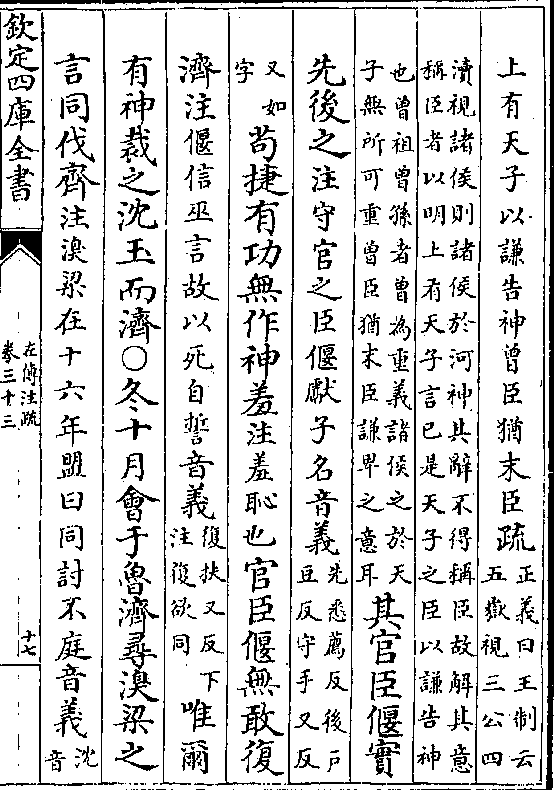 上有天子以謙告神曾臣猶末臣疏正義曰王制云
五嶽視三公四
瀆視諸侯則諸侯於河神其辭不得稱臣故解其意
稱臣者以明上有天子言已是天子之臣以謙告神
也曾祖曾孫者曾為重義諸侯之於天
子無所可重曾臣猶末臣謙卑之意耳其官臣偃實
先後之注守官之臣偃獻子名音義先悉薦反後戶
豆反守手又反
又如
字苟捷有功無作神羞注羞恥也官臣偃無敢復
濟注偃信巫言故以死自誓音義復扶又反下
注復欲同唯爾
有神裁之沈玉而濟○冬十月會于魯濟尋溴梁之
言同伐齊注溴梁在十六年盟曰同討不庭音義沈
音
欽定四庫全書
左傳注疏
卷三十三
十七